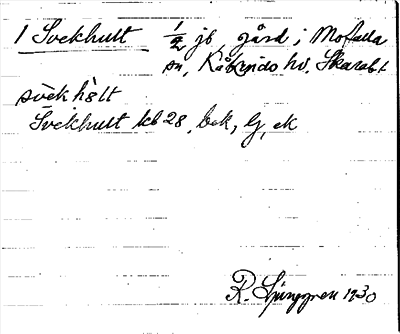 1 Svekhult ½ jb, gård i Mofalla
sn, Kåkinds hd. Skarab. l
svè̄k hù̀lt
Svekhult kb 28, bek, lg, ek
R. Ljunggren 1930